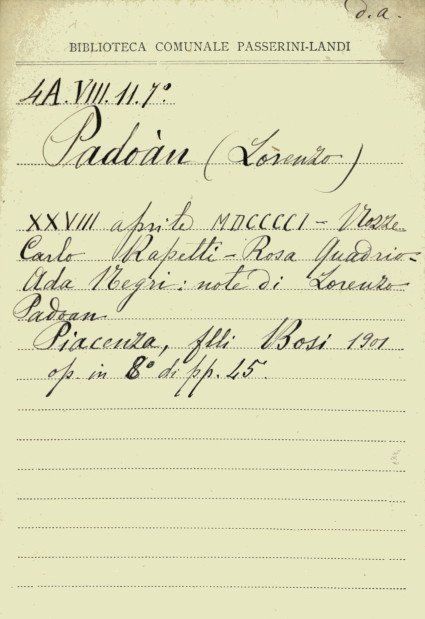 d.a.
BIBLIOTECA COMUNALE PASSERINI-LANDI
4A.VIII.11.7º.
Padoàn (Lorenzo)
XXVIII aprile MDCCCCI - Nozze
Carlo Rapetti - Rosa Quadrio=
Ada Negri: note di Lorenzo
Padoan
Piacenza, flli Bosi 1901
op. in 8º di pp. 45.